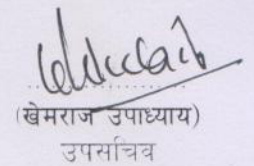 (खेमराज उपाध्याय)
उपसचिव